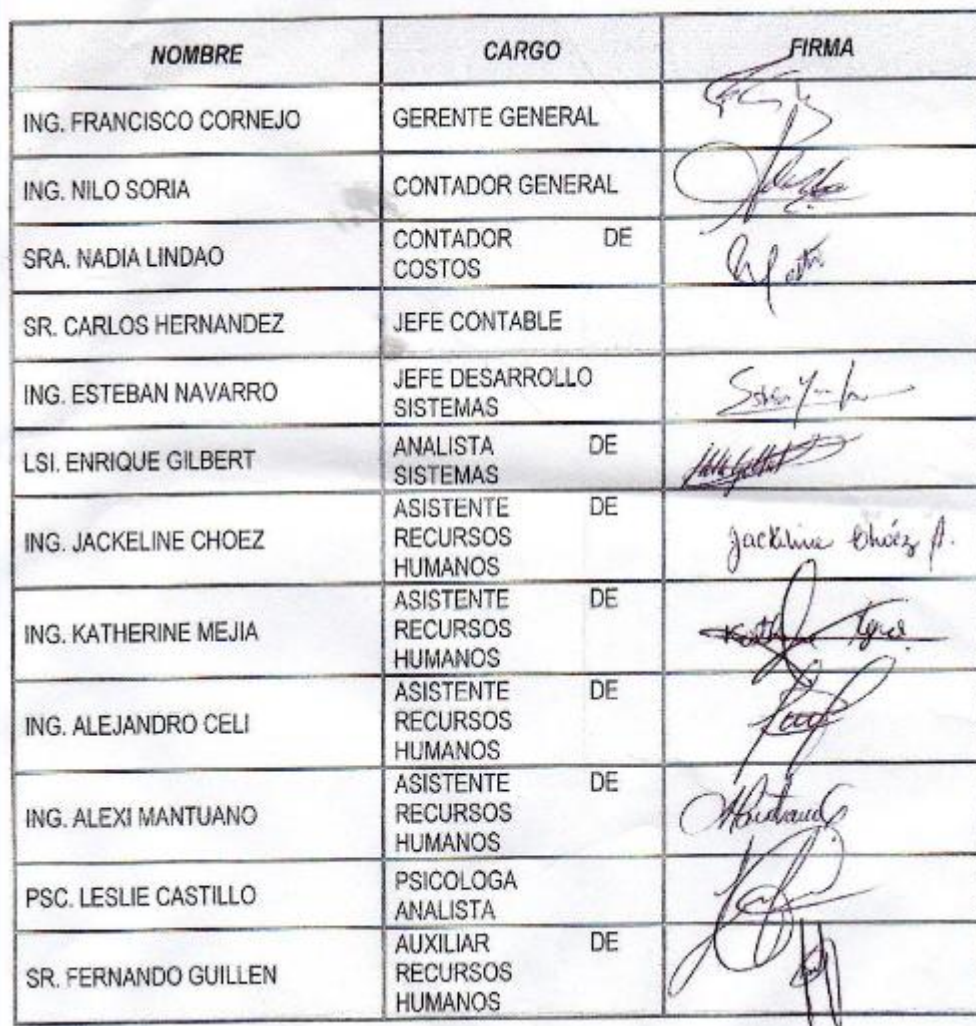 NOMBRE CARGO FIRMA
ING. FRANCISCO CORNEJO GERENTE GENERAL
ING. NILO SORIA CONTADOR GENERAL
SRA. NADIA LINDAO CONTADOR DE
COSTOS
SR. CARLOS HERNANDEZ JEFE CONTABLE
ING. ESTEBAN NAVARRO JEFE DESARROLLO
SISTEMAS
LSI. ENRIQUE GILBERT ANALISTA DE
SISTEMAS
ING. JACKELINE CHOEZ ASISTENTE DE
RECURSOS
HUMANOS
Jackeline Choéz A.
ING. KATHERINE MEJIA ASISTENTE DE
RECURSOS
HUMANOS
ING. ALEJANDRO CELI ASISTENTE DE
RECURSOS
HUMANOS
ING. ALEXI MANTUANO ASISTENTE DE
RECURSOS
HUMANOS
PSC. LESLIE CASTILLO PSICOLOGA
ANALISTA
SR. FERNANDO GUILLEN AUXILIAR DE
RECURSOS
HUMANOS